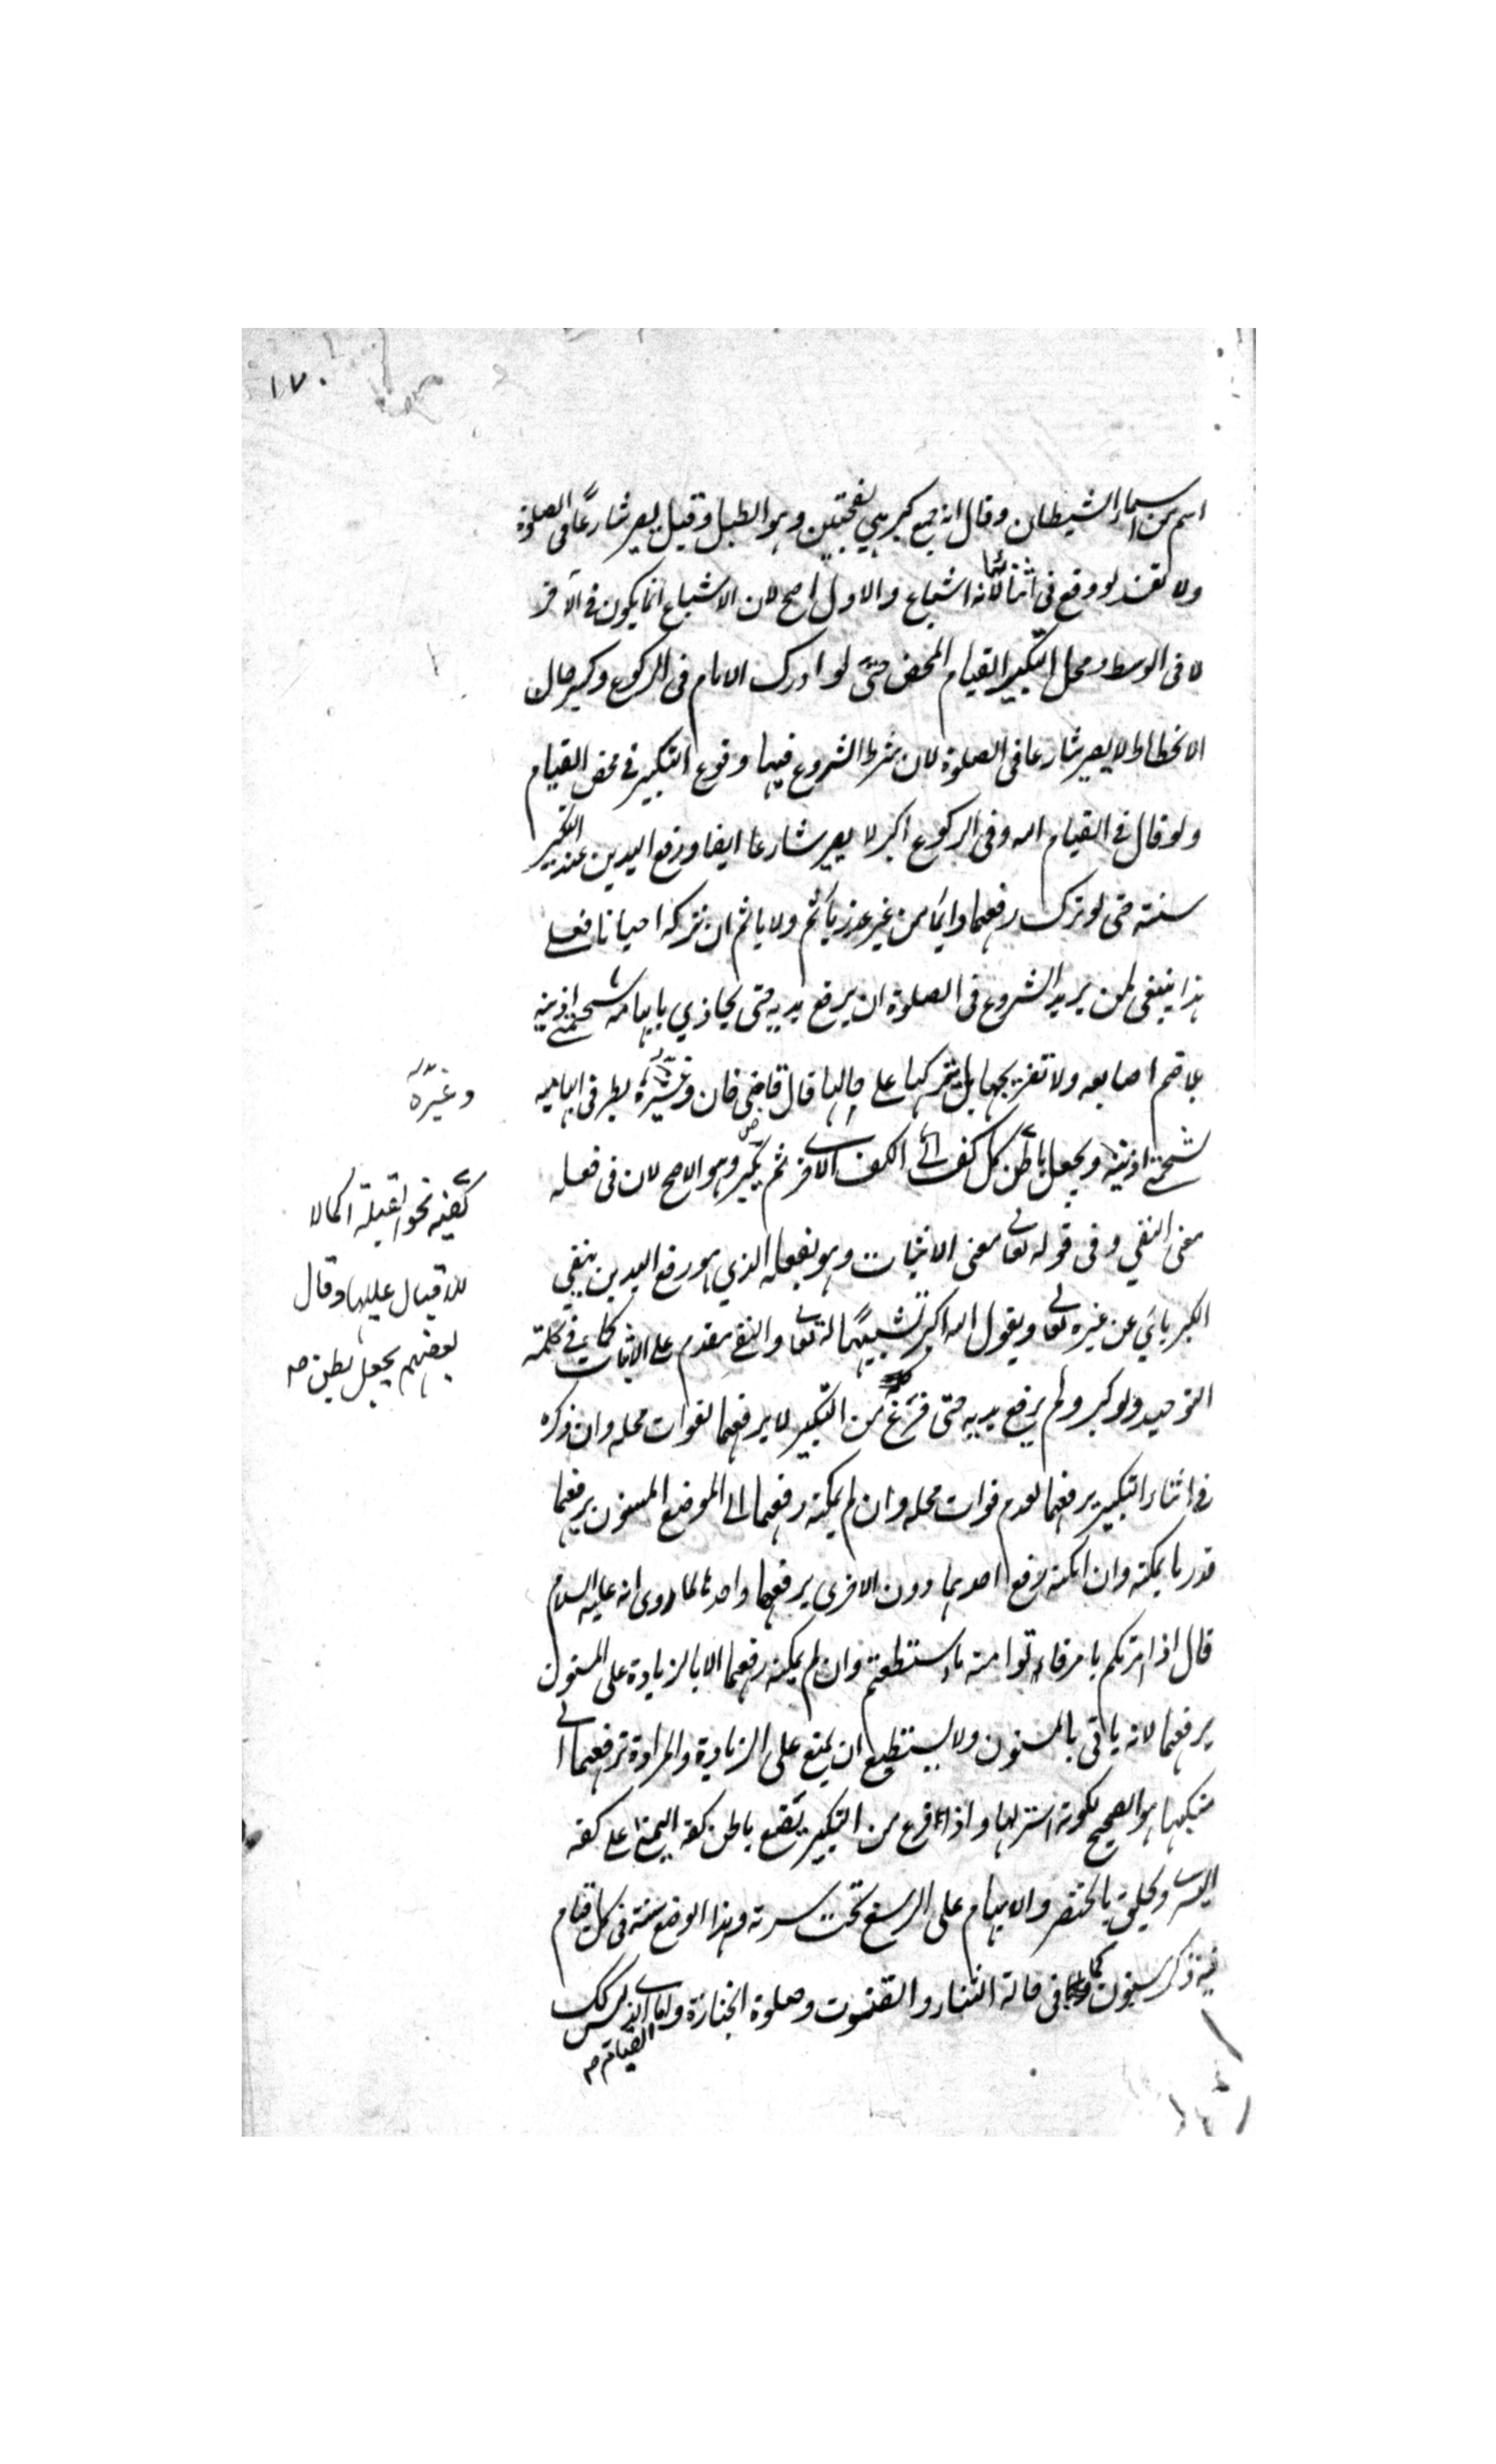 ١٧٠
اسم من اسماء الشيطان وقال انه جمع كبر هي بفتحتين وهو الطبل وقيل يصير شارعا فى الصلوة
ولا تفسد لو وقع فى اثنائها لانه اشباع والاول اصح لان الاشباع انما يكون فى الآخر
لا فى الوسط ومحل التكبير القيام المحض حتى لو ادرك الامام فى الركوع وكبر حال
الانحطاط لا يصير شارعا فى الصلوة لان شرط الشروع فيها وقوع التكبير فى محض القيام
ولو قال فى القيام الله وفى الركوع اكبر لا يصير شارعا ايضا ورفع اليدين عند التكبير
سنة حتى لو ترك رفعهما دائما من غير عذر ياثم ولا ياثم ان تركه احيانا فعلى
هذا ينبغى لمن يريد الشروع فى الصلوة ان يرفع يديه حتى يحاذي بابهاميه شحمتى اذنيه
بلا ضم اصابعه ولا تفريجها بل يتركها على حالها قال قاضى خان وغيره بطرفى ابهاميه
شحمتى اذنيه ويجعل باطن كل كف الى الكف الاخر ثم يكبر وهو الاصح لان فى فعله
معنى النفي وفى قوله تعالى معنى الاثبات وهو بفعله الذي هو رفع اليدين ينفي
الكبرياءي عن غيره تعالى ويقول الله اكبر له تعالى والنفى مقدم على الاثبات كما فى كلمة
التوحيد ولو كبر ولم يرفع يديه حتى فرغ من التكبير لا يرفعهما لفوات محله وان ذكره
فى اثناء التكبير يرفعهما لعدم فوات محله وان لم يمكنه رفعهما الى الموضع المسنون يرفعهما
قدر ما يمكنه وان امكنه رفع احديهما دون الاخرى يرفعها واحدها لما روى انه عليه السلام
قال اذا امرتكم بامر فاءتوا منه ما استطعتم وان لم يمكنه رفعهما الا بالزيادة على المسنون
يرفعهما لانه ياتى بالمسنون ولا يستطيع ان يمتنع على الزيادة والمراءة ترفعهما الى
منكبيها هو الصحيح لكونه استر لها واذا فرغ من التكبير يضع باطن كفه اليمنى على كفه
اليسرى ويحلق بالخنصر والابهام على الرسغ تحت سرته وهذا الوضع سنة فى كل قيام
فيه ذكر مسنون كما فى حالة الثناء والقنوت وصلوة الجنازة واما الذى ليس كك
القيام صح
وغيره
كفيه نحو القبلة اكمالا
للاقبال عليها وقال
بعضهم يجعل بطن صح